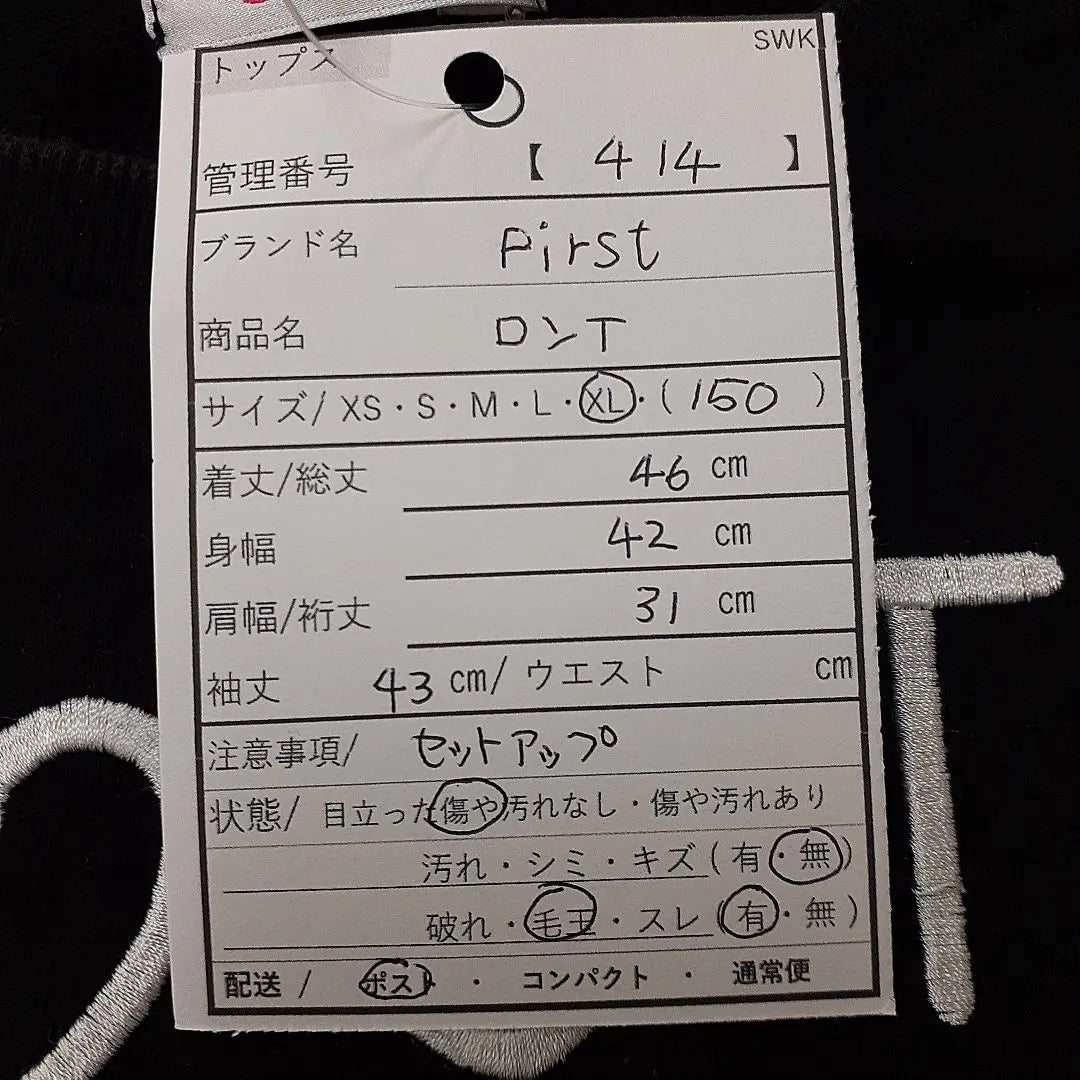 SWK
トップス
管理番号 【 414 】
ブランド名 Pirst
商品名 ロンT
サイズ/ XS・S・M・L・XL・(150)
着丈/総丈 46 cm
身幅 42 cm
肩幅/裄丈 31 cm
袖丈 43 cm/ ウエスト cm
注意事項/ セットアップ
状態/ 目立った傷や汚れなし・傷や汚れあり
汚れ・シミ・キズ(有・無)
破れ・毛玉・スレ(有・無)
配送 / ポスト ・ コンパクト ・ 通常便